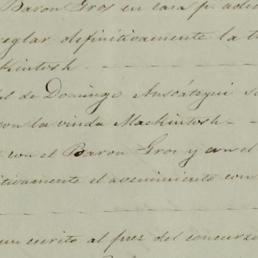 Baron Gros en casa p.
reglar definitivamente la t
Kintosh
el de Domingo Ansoátegui s
con la viuda Mackintosh
con el Baron Gros y con el
itivamente el avenimiento con
un escrito al juez del concurso